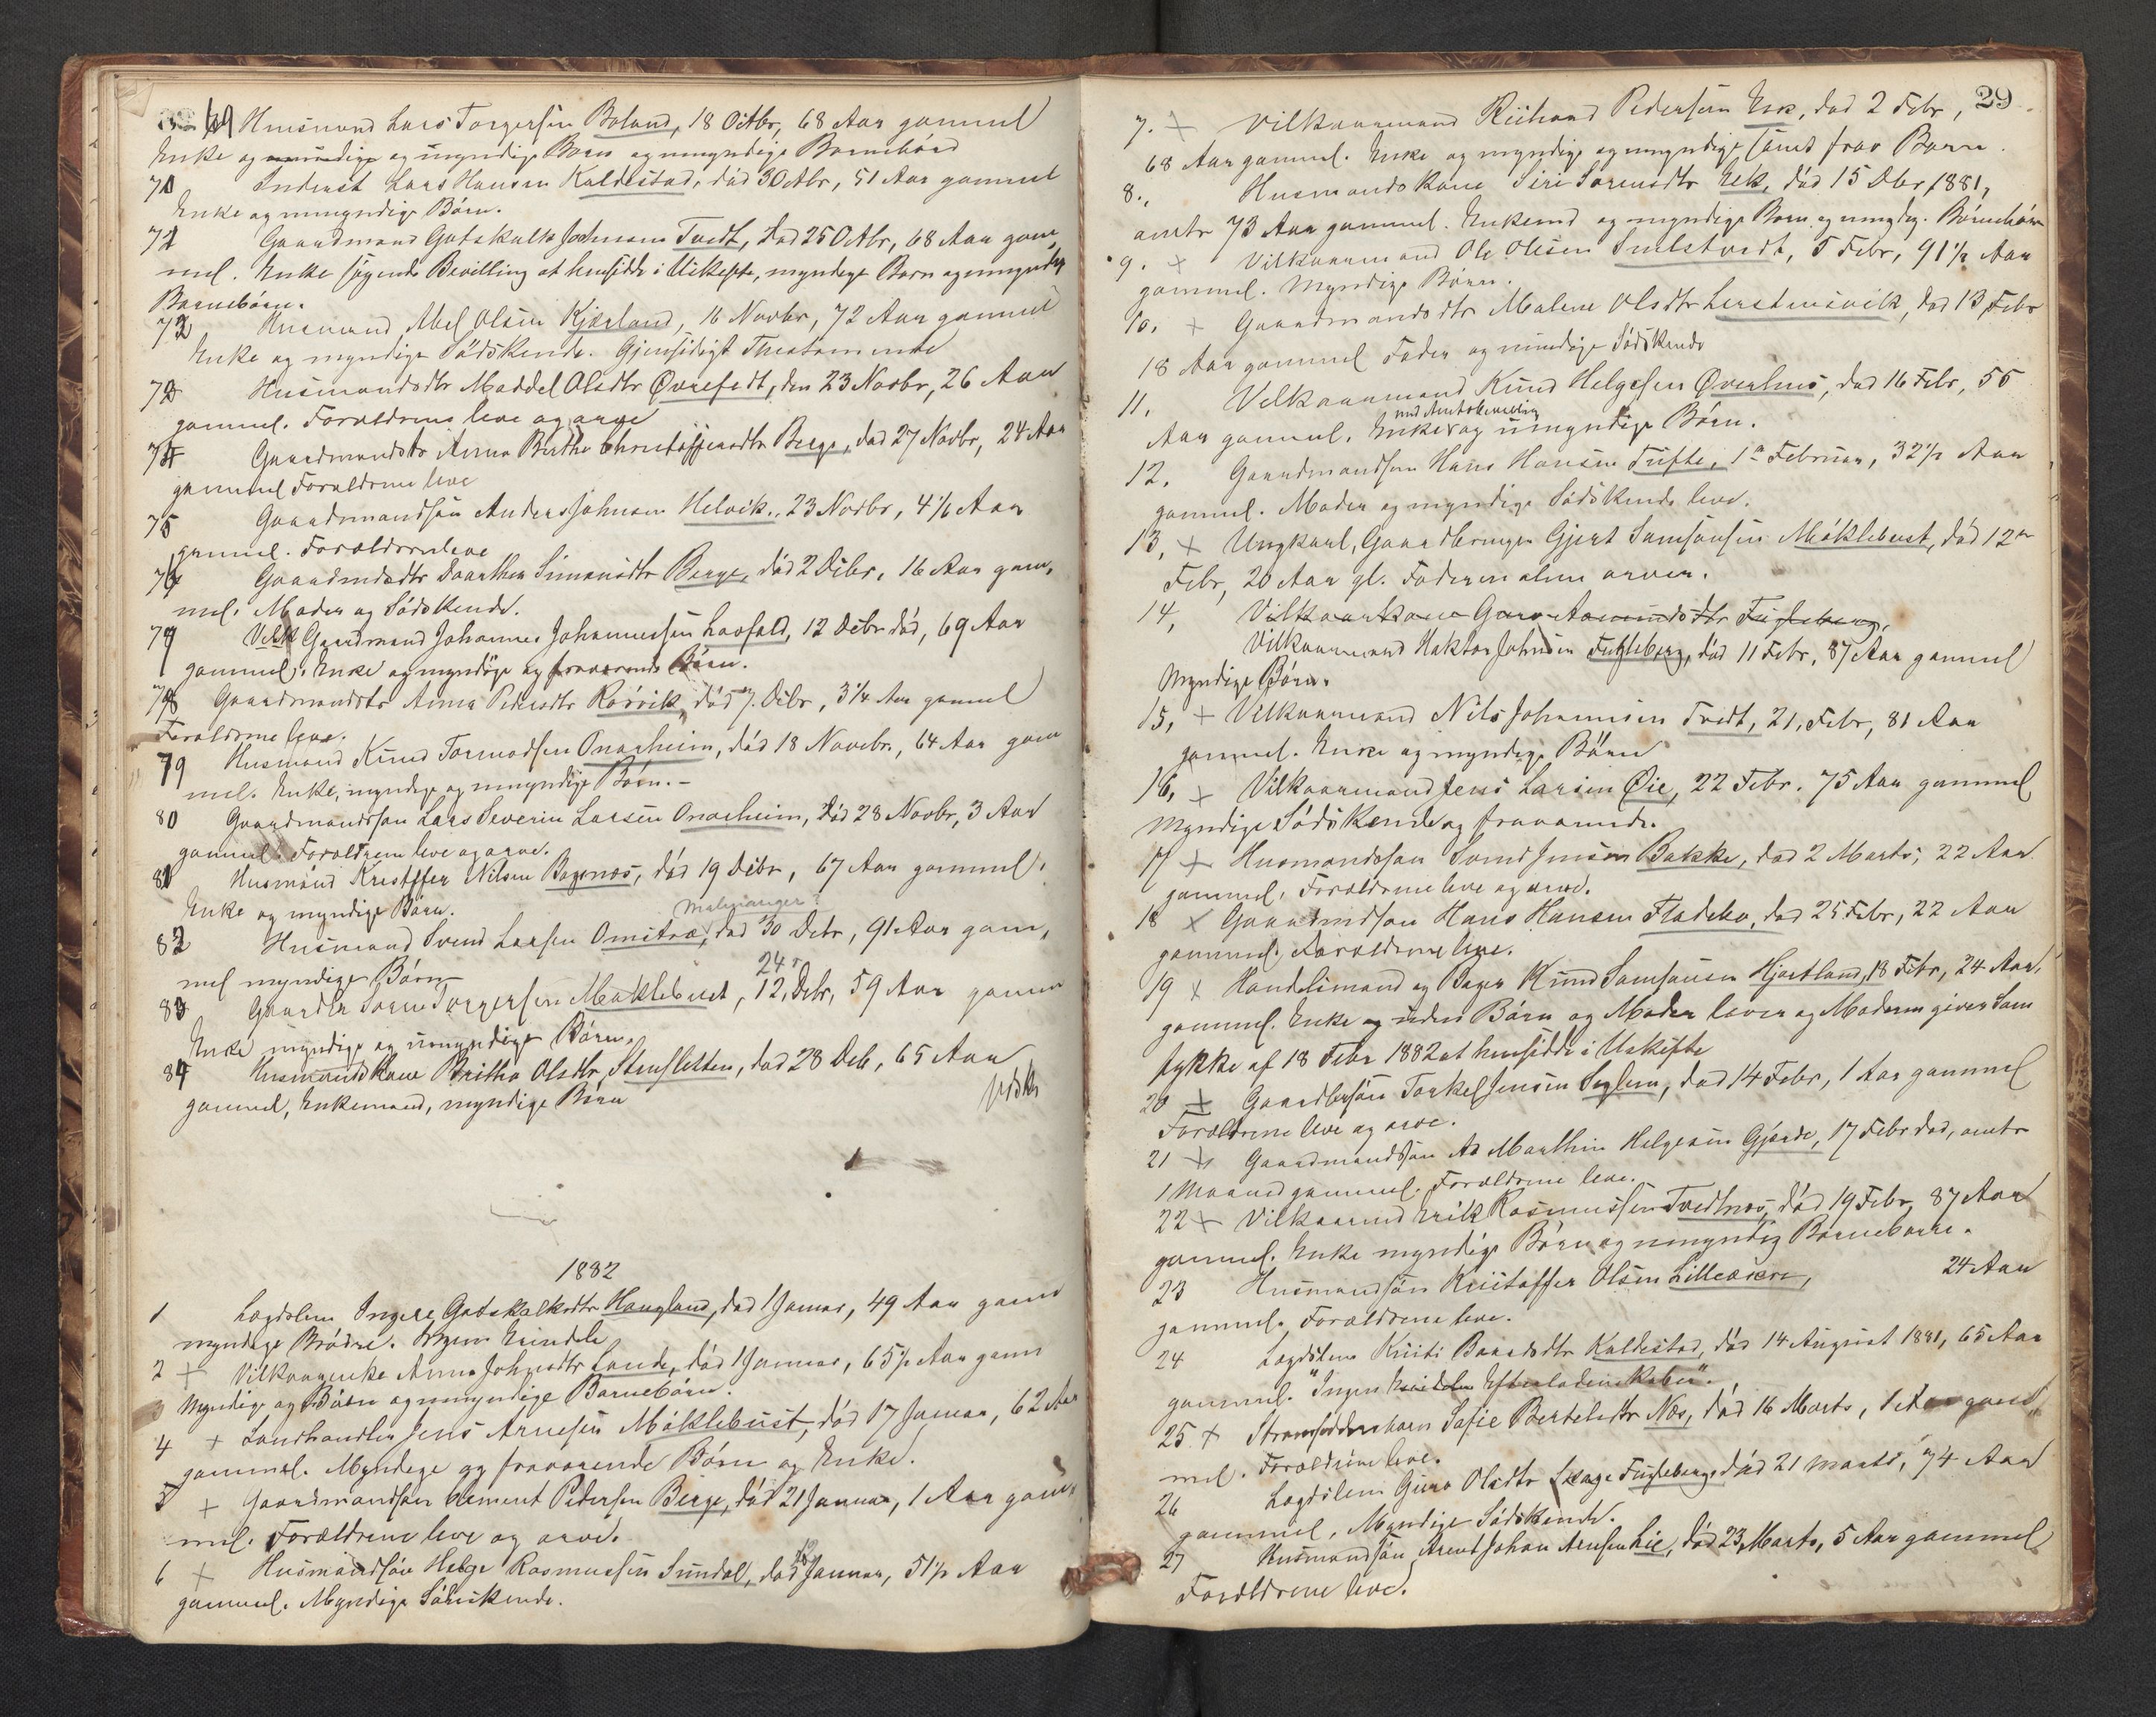 69 Husmand Lars Torgersen Boland, 18 Octbr, 68 Aar gammel
Enke og myndige og umyndige Børn og umyndige Børnebørn
70 Inderst Lars Hansen Kaldestad, død 30 Octbr, 51 Aar gammel
Enke og umyndige Børn.
71 Gaardmand Gotskalk Johnsen Tvedt, død 25 Octbr, 68 Aar gam-
mel. Enke søgende Bevilling at hensidde i Uskifte, myndige Børn og umyndige
Børnebørn.
72 Husmand Abel Olsen Kjærland, 16 Novbr, 72 Aar gammel
Enke og myndige Södskende. Gjensidigt Thestamente
73 Husmandsdtr Maddel Olsdtr Øvrefedt, den 23 Novbr, 26 Aar
gammel. Forældrene leve og arve
74 Gaardmandsdtr Anna Birthe Christoffersdtr Berge, død 27 Novbr, 24 Aar
gammel Forældrene leve
75 Gaardmandsøn Anders Johnsen Helvik, 23 Novbr, 4 1/6 Aar
gammel. Forældrene leve
76 Gaardmdsdtr Dorthea Simonsdtr Berge, död 2 Debr, 16 Aar gam-
mel. Moder og Södskende.
77 Vilk Gaardmand Johannes Johannessen Laafald, 12 Debr död, 69 Aar
gammel. Enke og myndige og fraværende Børn.
78 Gaardmandsdtr Anna Pedersdtr Rörvik, död 7. Debr, 3 1/4 Aar gammel
Forældrene leve.
79 Husmand Knud Tormodsen Onarheim, död 18 Novebr, 64 Aar gam
mel. Enke, myndige og umyndige Børn. -
80 Gaardmandssøn Lars Severin Larsen Onarheim, död 28 Novbr, 3 Aar
gammel. Forældrene leve og arve.
81 Husmand Kristoffer Nilsen Bogsnæs, död 19 Debr, 67 Aar gammel.
Enke og myndige Børn.
Malmanger?
82 Husmand Svend Larsen Omstræ, död 30 Debr, 91 Aar gam-
mel myndige Børn
24 r
83 Gaardbr Sören Torgersen Møklebust, 12, Debr, 59 Aar gamm
Enke myndige og umyndige Børn.
84 Husmandskone Britha Olsdtr Stensletten, død 28 Deb, 65 Aar
gammel, Enkemand, myndige Børn
1882
1 Lægdslem Ingere Gotskalksdtr Haugland, død 1 Januar, 49 Aar gaml
myndige Brødre. Ingen Eiendele
2 + Vilkaarsenke Anna Johnsdtr Lande, död 1 Januar, 65 1/2 Aar gaml
3 Myndige og Børn og umyndige Børnebørn.
4 + Landhandler Jens Arnesen Møklebust, död 17 Januar, 62 Aar
gammel. Myndige og fraværende Börn og Enke.
5 + Gaardmandsøn Clement Pedersen Berge, död 21 Januar, 1 Aar gam-
mel. Forældrene leve og arve.
6 + Husmandsøn Helge Rasmussen Sundal, død 12 Januar, 51 1/2 Aar
gammel. Myndige Söskende.
29
7. + Vilkaarmand Richard Pedersen Eik, død 2 Febr,
68 Aar gammel. Enke og myndige og umyndige samt frav Børn.
8., Husmandskone Siri Sørensdtr Eek, död 15 Dbr 1881,
omtr 73 Aar gammel. Enkemd og myndige Børn og umyndig. Börnebörn
9. + Vilkaarmand Ole Olsen Sælstvedt, 5 Febr, 91 1/2 Aar
gammel. Myndige Börn.
10. + Gaardmandsdtr Malene Olsdtr Lerstensvik, død 13 Febr
18 Aar gammel Fader og mindige Södskende
11. Velkaarmand Knud Helgesen Øverhus, død 16 Febr, 55
med Amtsbevilling
Aar gammel. Enke og umyndige Börn.
12. Gaardmandsøn Hans Hansen Tufte, 1ste Februar, 32 1/2 Aar
gammel. Moder og myndige Södskende leve.
13, + Ungkarl, Gaardbruger Gjert Samsonsen Möklebust, död 12te
Febr, 20 Aar gl. Faderen alene arver.
14, Vilkaarkone Guro Aamundsdtr Fugleberg,
Vilkaarmand Haktor Johnsen Fugleberg, död 11 Febr, 87 Aar gammel
Myndige Börn.
15, + Velkaarmand Nils Johannesen Tvedt, 21, Febr, 81 Aar
gammel. Enke og myndige Börn
16, + Vilkaarmand Jens Larsen Øie, 22 Febr. 75 Aar gammel
Myndige Södskende og fraværende.
17 + Husmandssøn Svend Jensen Bakke, død 2 Marts, 22 Aar
gammel, Forældrene leve og arve.
18 + Gaardmdsøn Hans Hansen Fladebo, død 25 Febr, 22 Aar
gammel. Forældrene leve.
19 + Handelsmand og Bager Knud Samsonsen Hjartland, 18 Febr, 24 Aar,
gammel. Enke og uden Børn og Moder lever og Moderen giver Sam
tykke af 18 Febr 1882 at hensidde i Uskifte
20 + Gaardbrsøn Torkel Jensen Seglem, død 14 Febr, 1 Aar gammel
Forældrene leve og arve.
21 + Gaardmandsøn Ad Marthin Helgesen Gjærde, 17 Febr død, omtr
1 Maaned gammel. Forældrene leve.
22 + Vilkaarmd Erik Rasmussen Tvedtnæs, död 19 Febr, 87 Aar
gammel. Enke myndige Börn og umyndig Barnebarn.
23 Husmandsøn Kristoffer Olsen Lilleøren, 24 Aar
gammel. Forældrene leve.
24 Lægdslem Kristi Baardsdtr Kaldestad, död 14 August 1881, 65 Aar
gammel. "Ingen Eiendele Efterladenskaber".
25 + Strandsidderbarn Sofie Bertelsdtr Næs, død 16 Marts, 1 Aar gam-
mel. Forældrene leve.
26 Lægdslem Guro Olsdtr Fugleberg, död 21 Marts, 74 Aar
gammel, Myndige Södskende.
27 Husmandsøn Arent Johan Arnesen Lie, död 23 Marts, 5 Aar gammel
Forældrene leve.